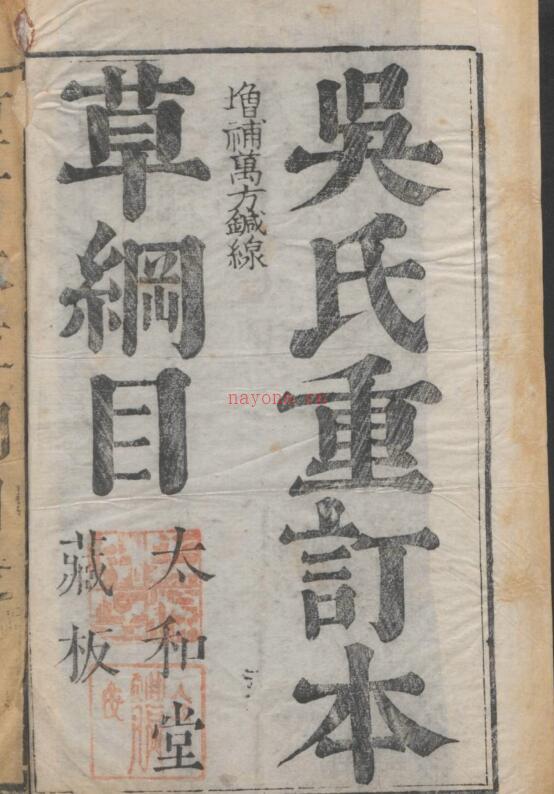 吳氏重訂本
增補萬方鍼線
草綱目
太和堂
藏板